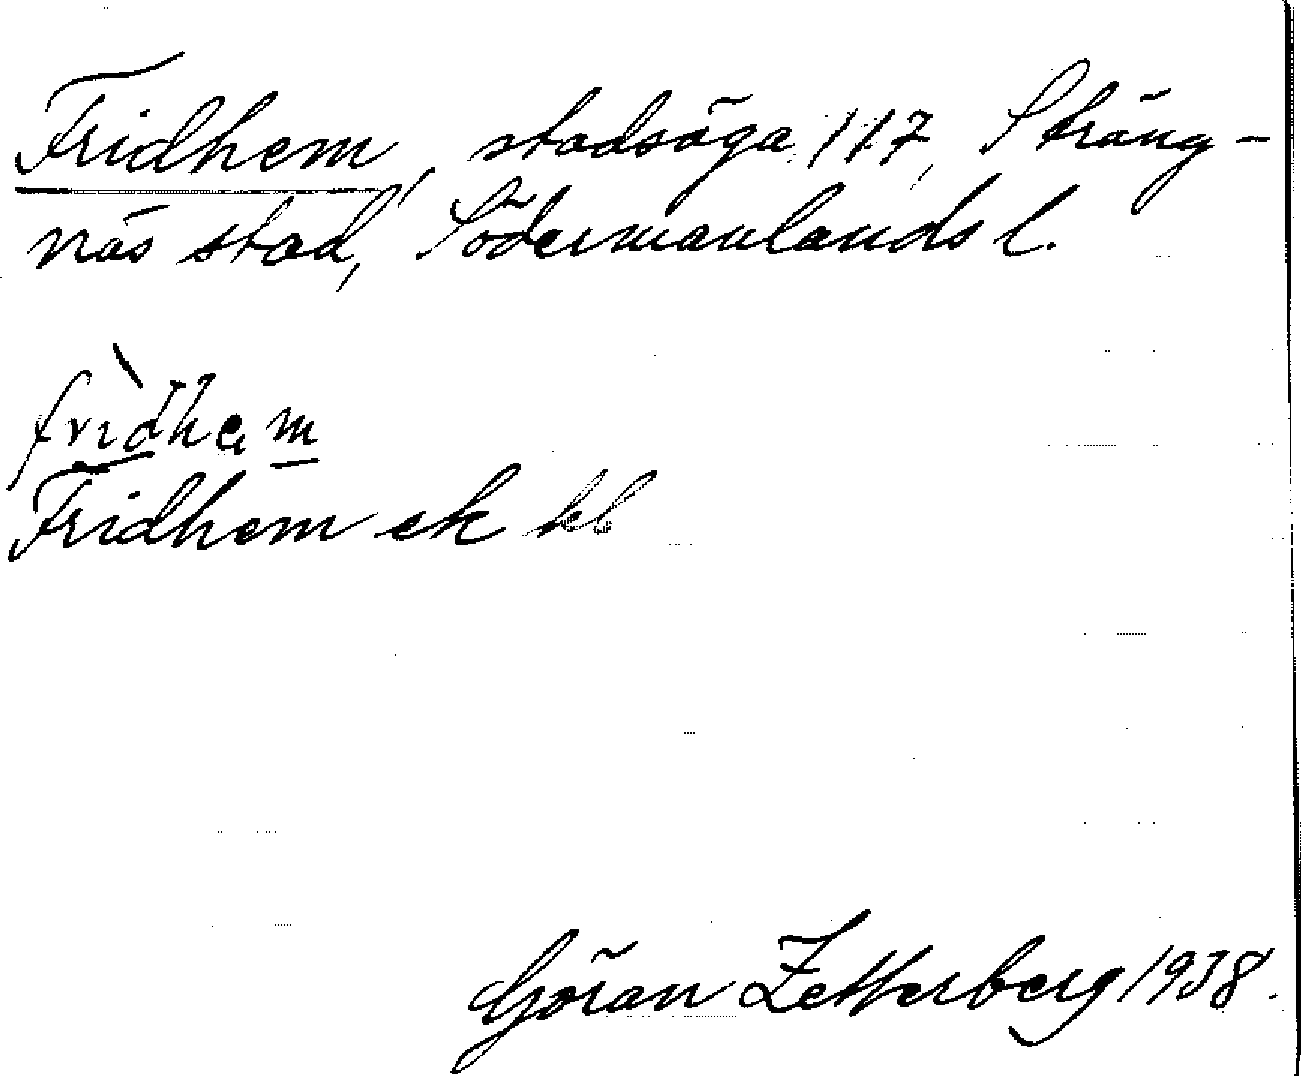 Fridhem, stadsäga 117, Sträng-
näs stad, Södermanlands l.
frìdhem
Fridhem ek kb
Göran Zetterberg 1938.